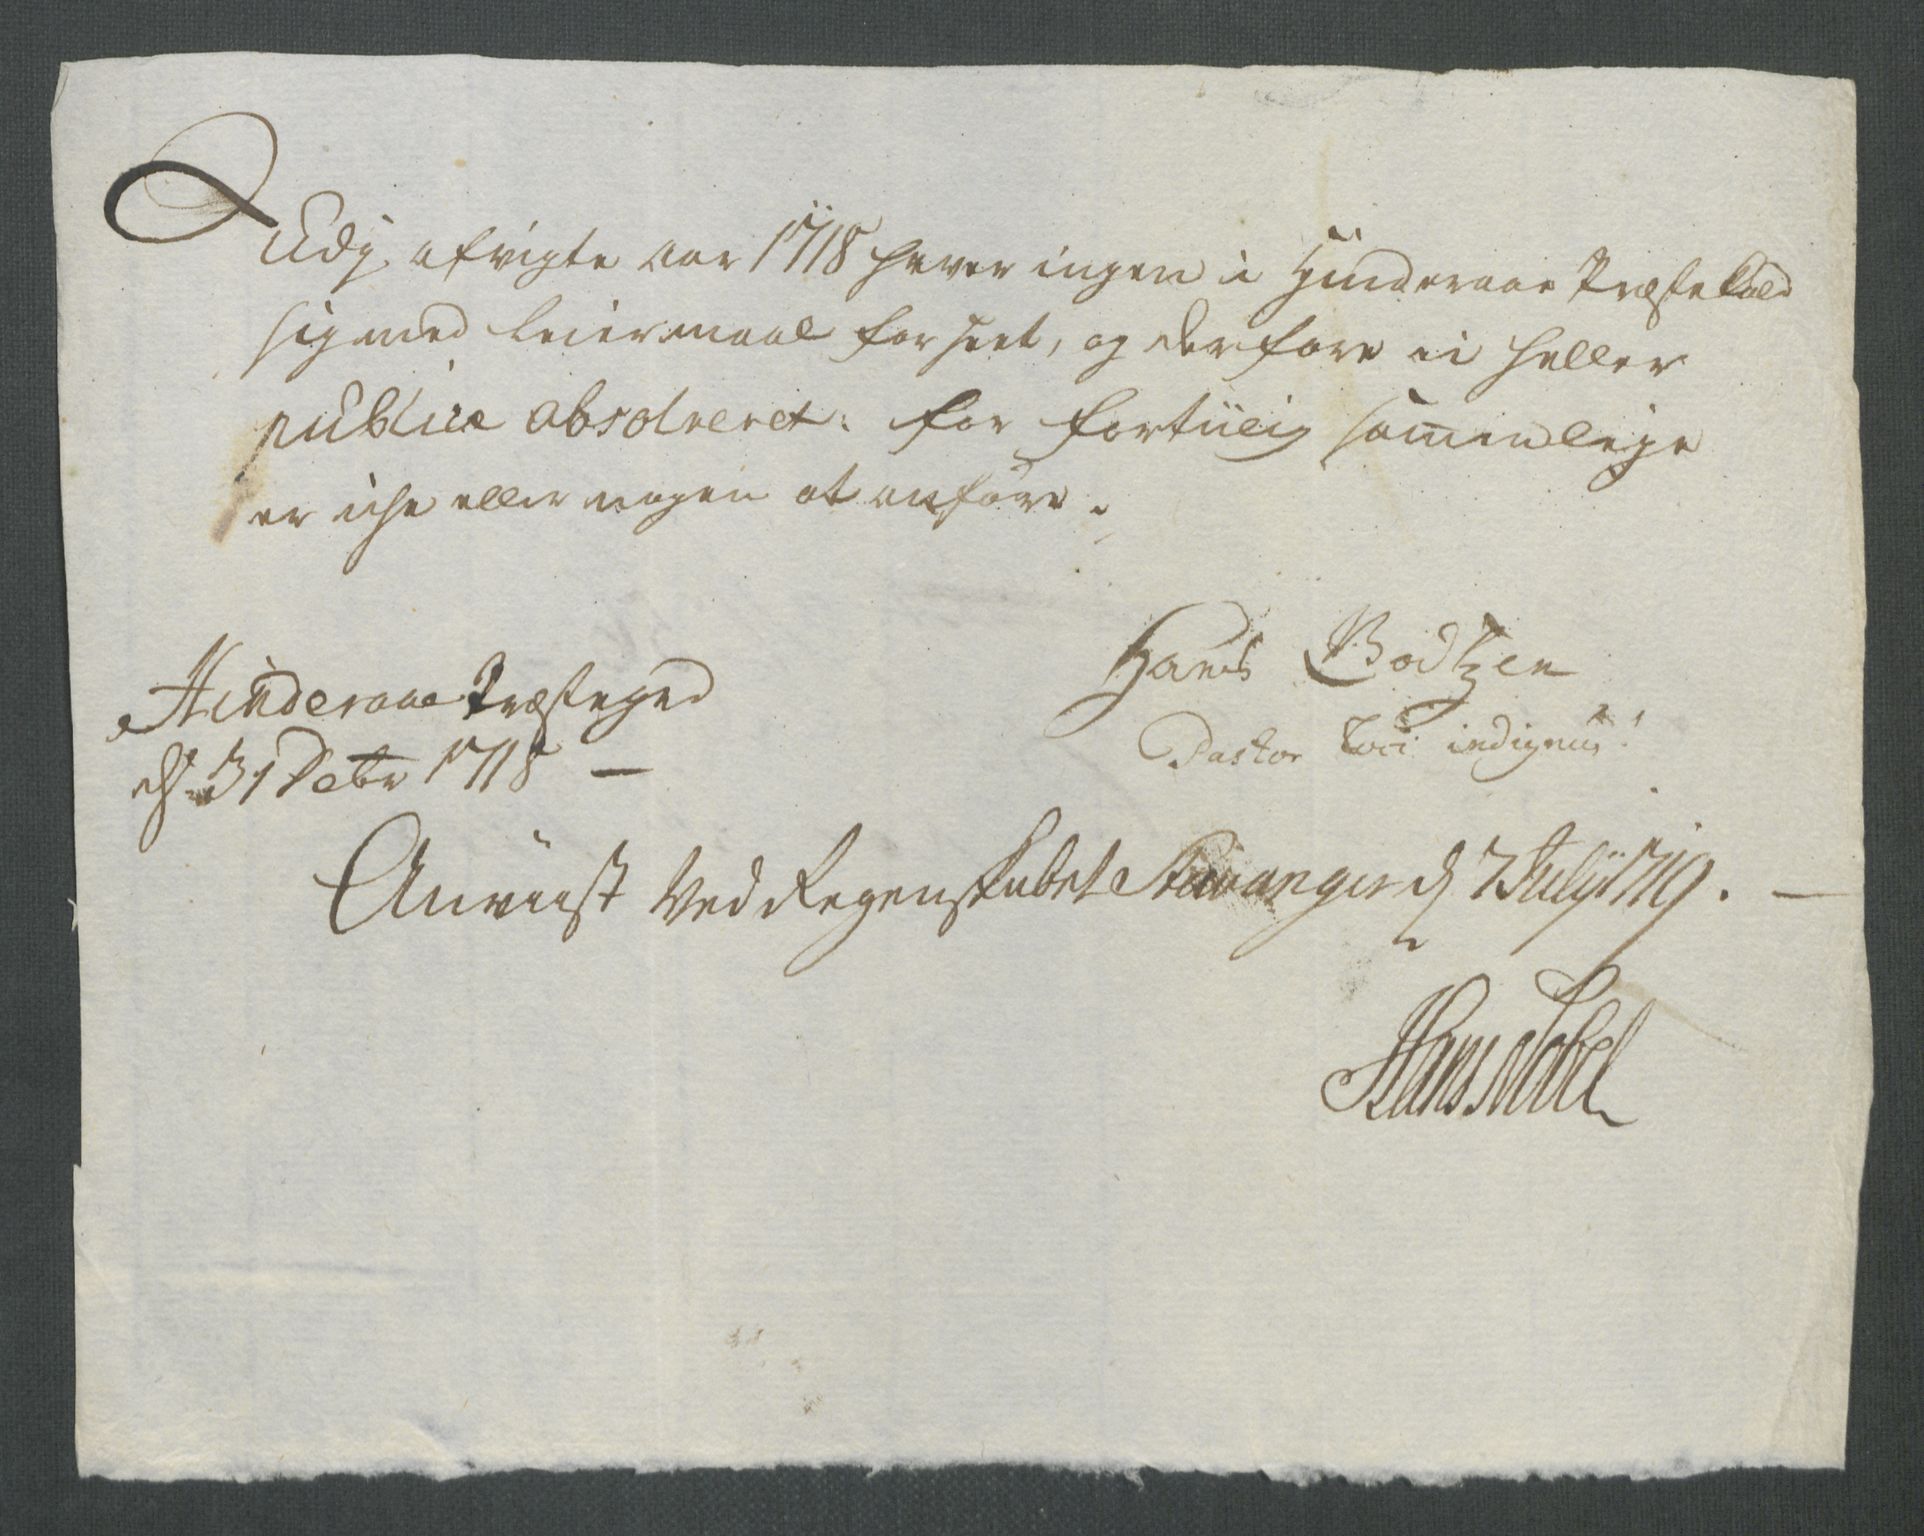 Udj afvigte aar 1718 haver ingen i Hinderaae Præstekald
sig med leiermaal forseet, og derfore ei heller
publice absolveret. for fortiilig sammenleje
er iche eller nogen at anføre.
Hans Bodtzen
Pastor Loci indignus!
Hinderaae Præstegrd
d. 31 Decbr 1718 —
Anviist Ved Regenskabet Stavanger d 7 July 1719. —
Hans Nobel